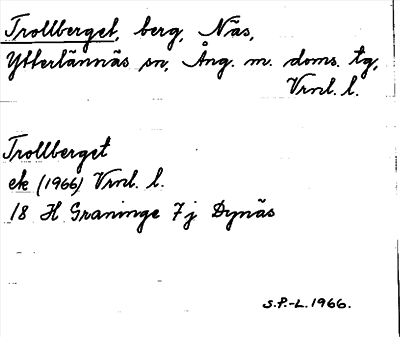 Trollberget, berg, Näs,
Ytterlännäs sn, Ång. m. doms. tg,
Vrml. l.
Trollberget
ek (1966) Vrml. l.
18 H Graninge 7j Dynäs
S.P.-L. 1966.